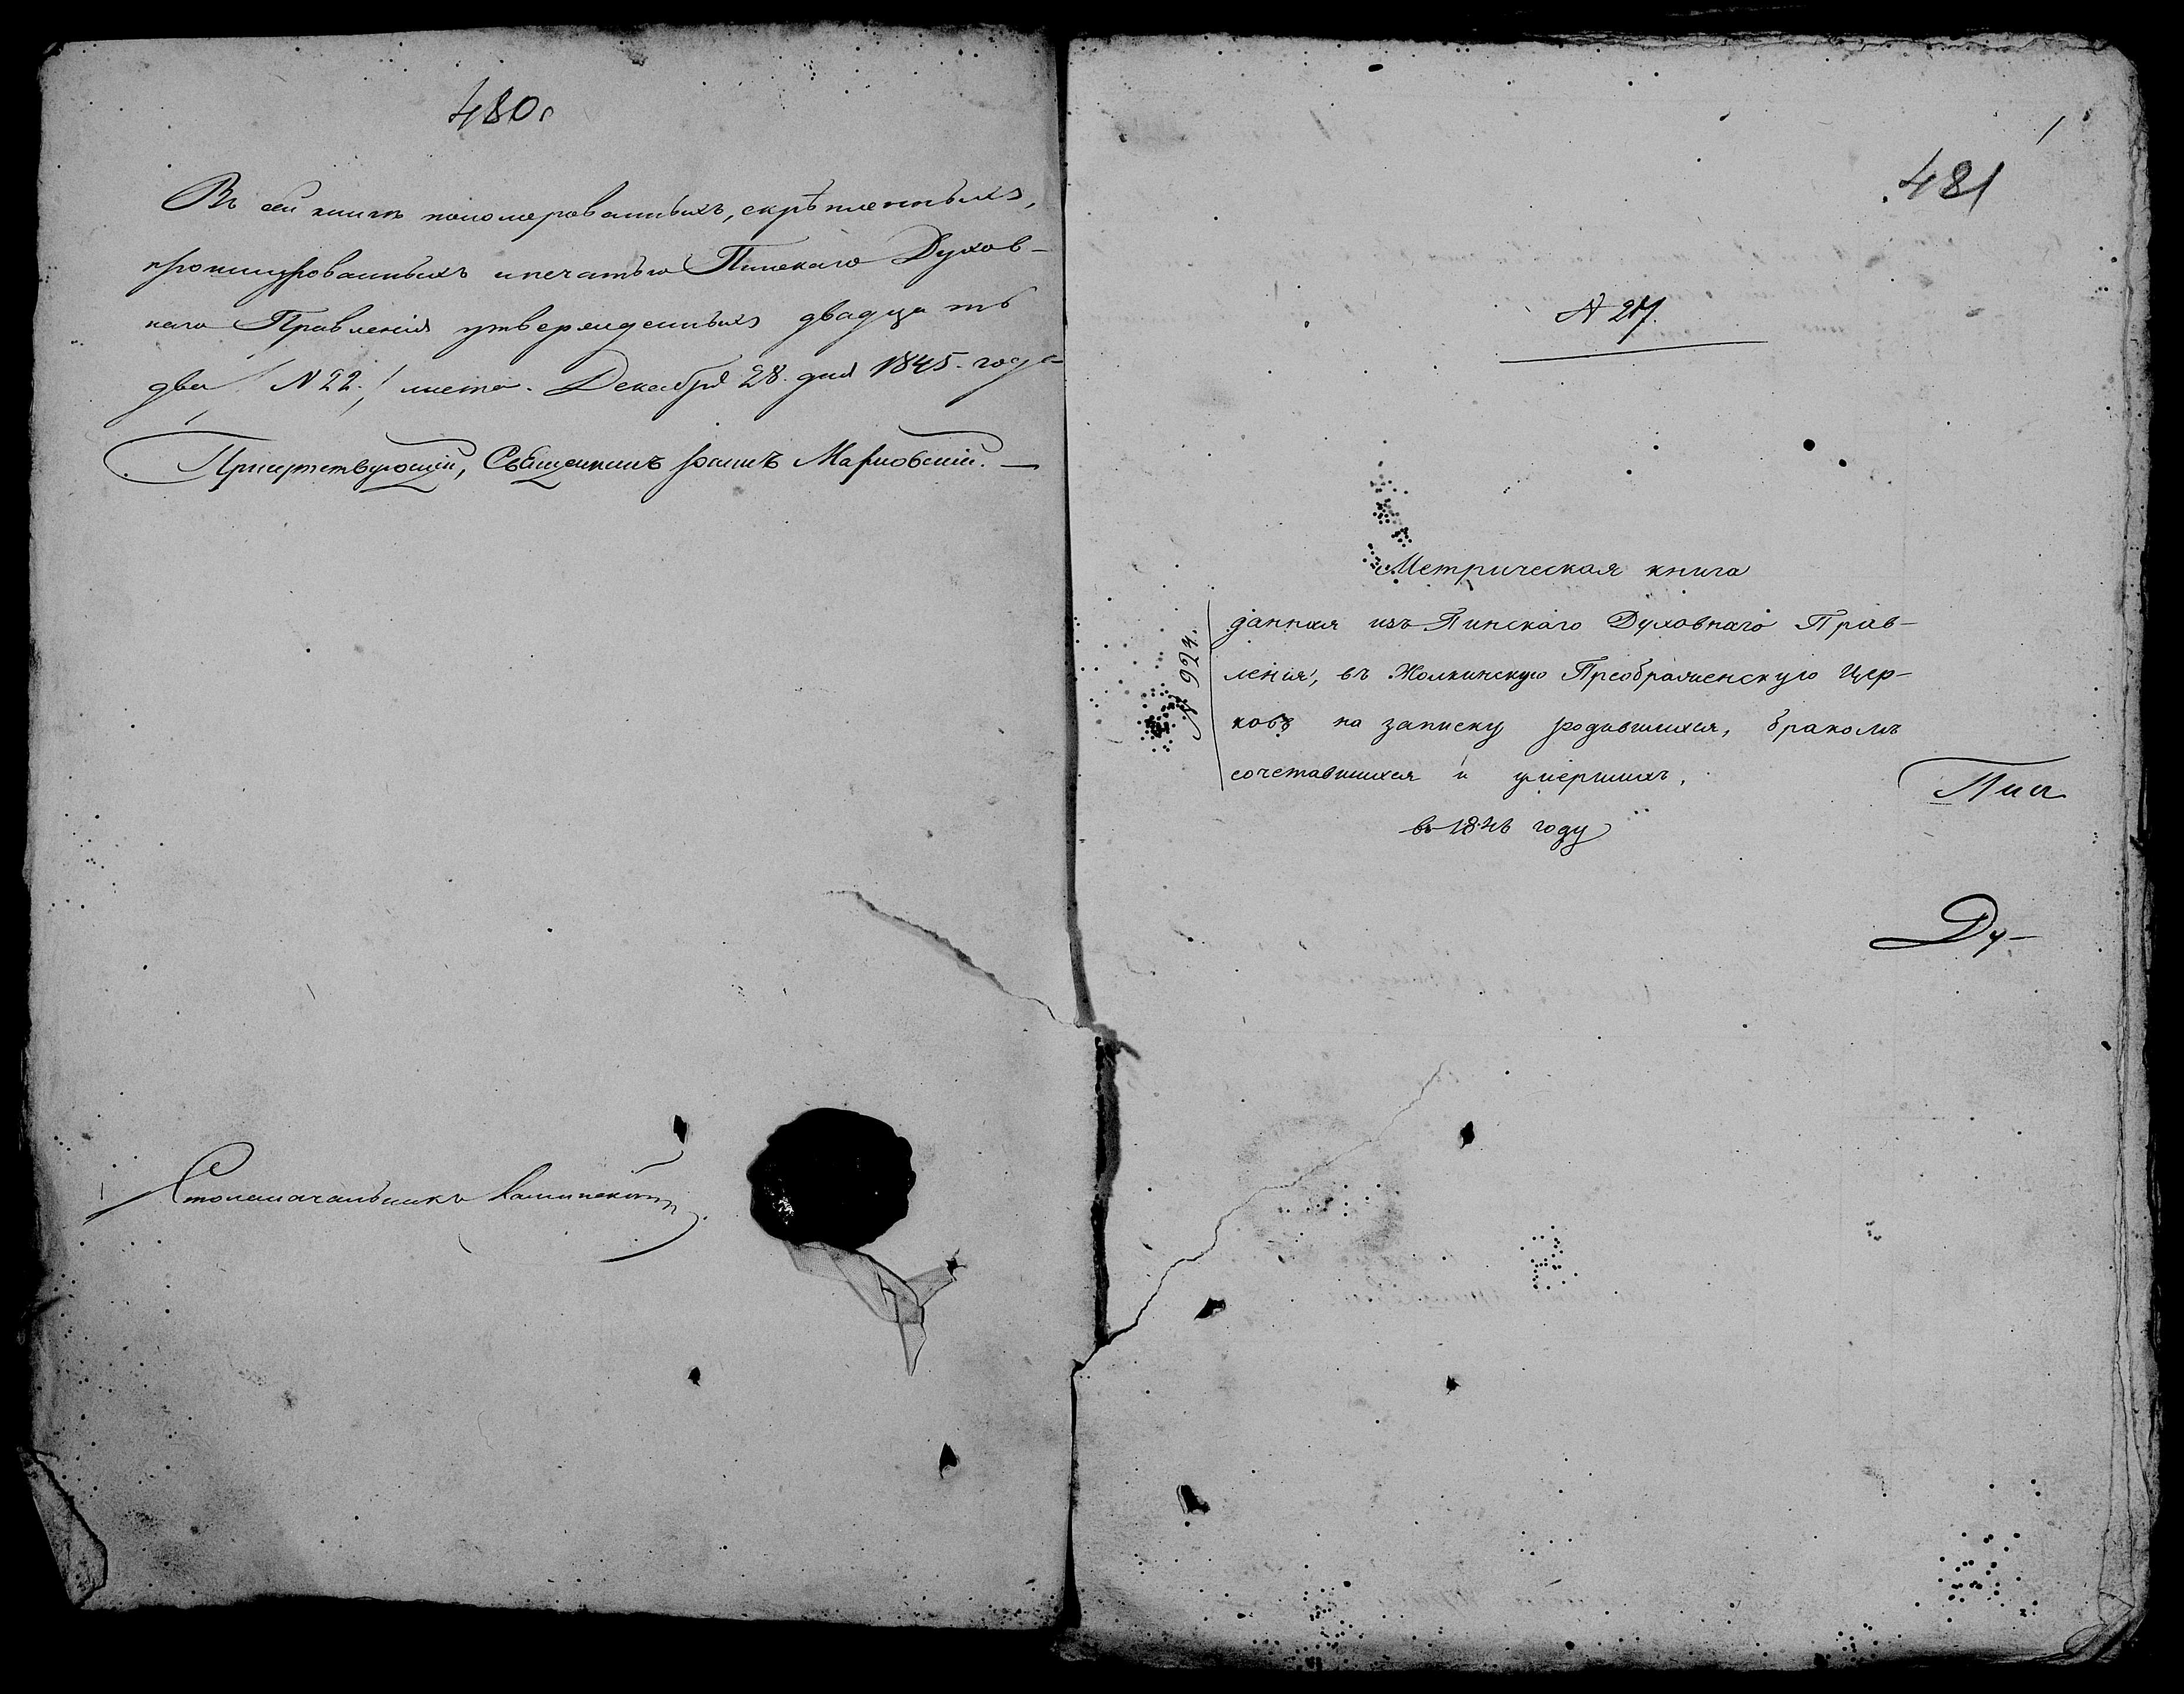 480
Въ сей книгѣ пономерованныхъ, скрѣпленныхъ,
прошнурованныхъ и печатью Пинскаго Духов-
наго Правленія утвержденныхъ двадцать
два / N 22. / листа. Декабря 28. дня 1845. года
Присутствующій, Священникъ Іоаннъ
Столоначальникъ
481
1
N 27.
Метрическая книга
N 924.
данная изъ Пинскаго Духовнаго Прав-
ленія, въ Жолкинскую Преображенскую Цер-
ковь на записку родившихся, бракомъ
сочетавшихся и умершихъ,
въ 1846 году
Пин
Ду-